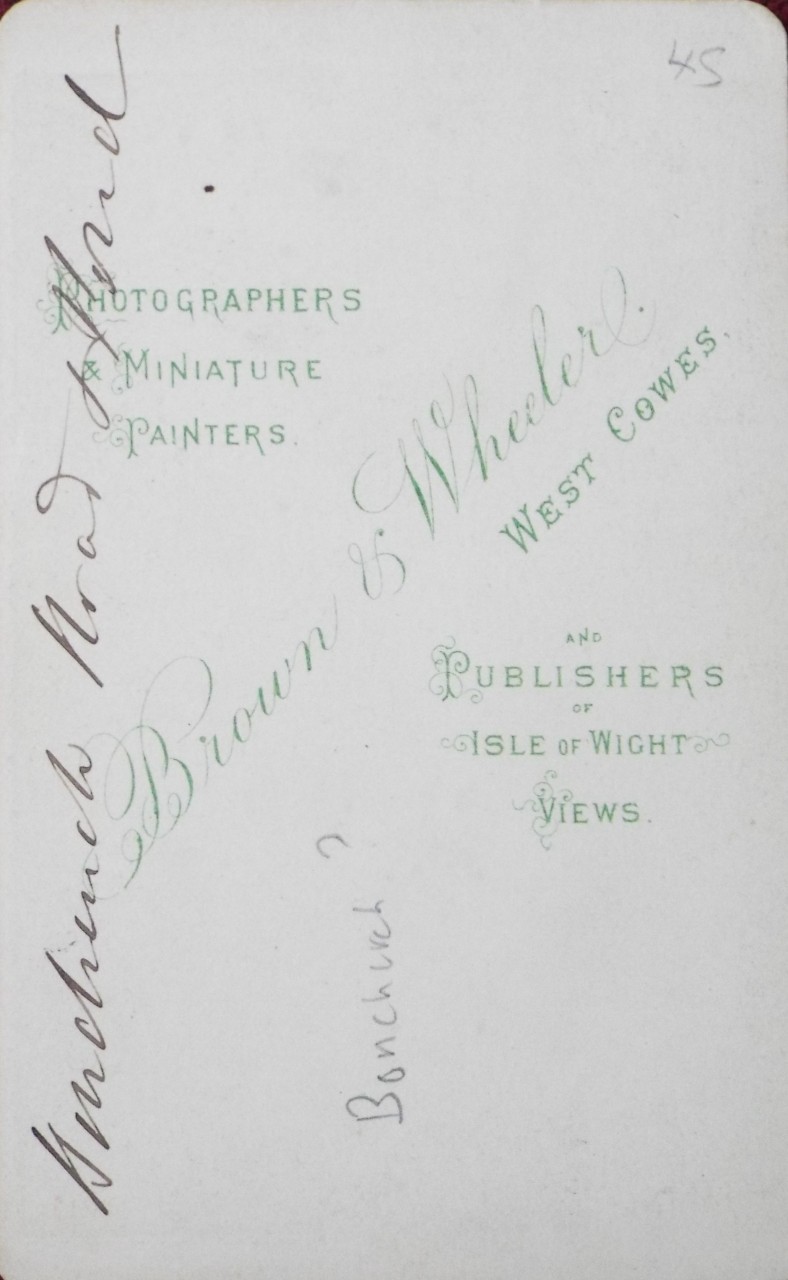 45
PHOTOGRAPHERS
& MINIATURE
PAINTERS.
Brown & Wheeler.
WEST COWES.
AND
PUBLISHERS
OF
ISLE OF WIGHT
VIEWS.
Road
Bonchurch ?